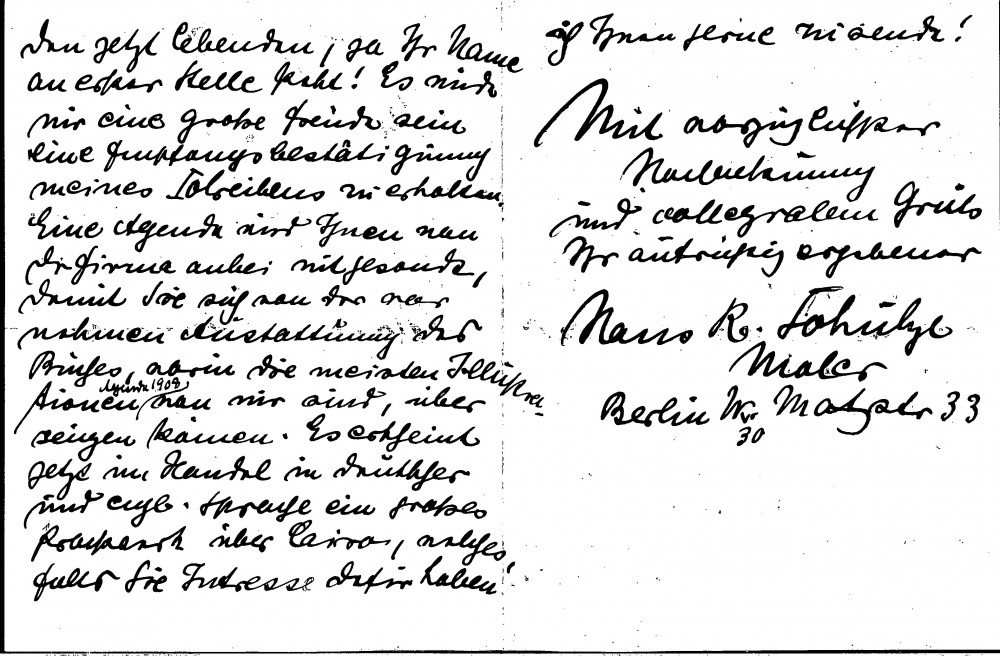 den jetzt lebenden, ja Ihr Name
an erster Stelle steht! Es wird
mir eine große Freude sein
eine Empfangsbestätigung
meines Schreibens zu erhalten.
Eine Agenda wird Ihnen von
der Firma anbei mitgesandt,
damit Sie sich von der vor
nehmen Ausstattung des
Buches, worin die meisten Illustra-
Agenda 1908
tionen von mir sind, über
zeugen können. Es erscheint
jetzt im Handel in deutscher
und engl. Sprache ein großes
Prachtwerk über Cairo, welches,
falls Sie Interesse dafür haben
ich Ihnen gerne zusende!
Mit vorzüglichster
Hochachtung
und collegialem Gruß
Ihr aufrichtig ergebener
Hans R. Schulze
Maler
Berlin W. Matzstr 33
30